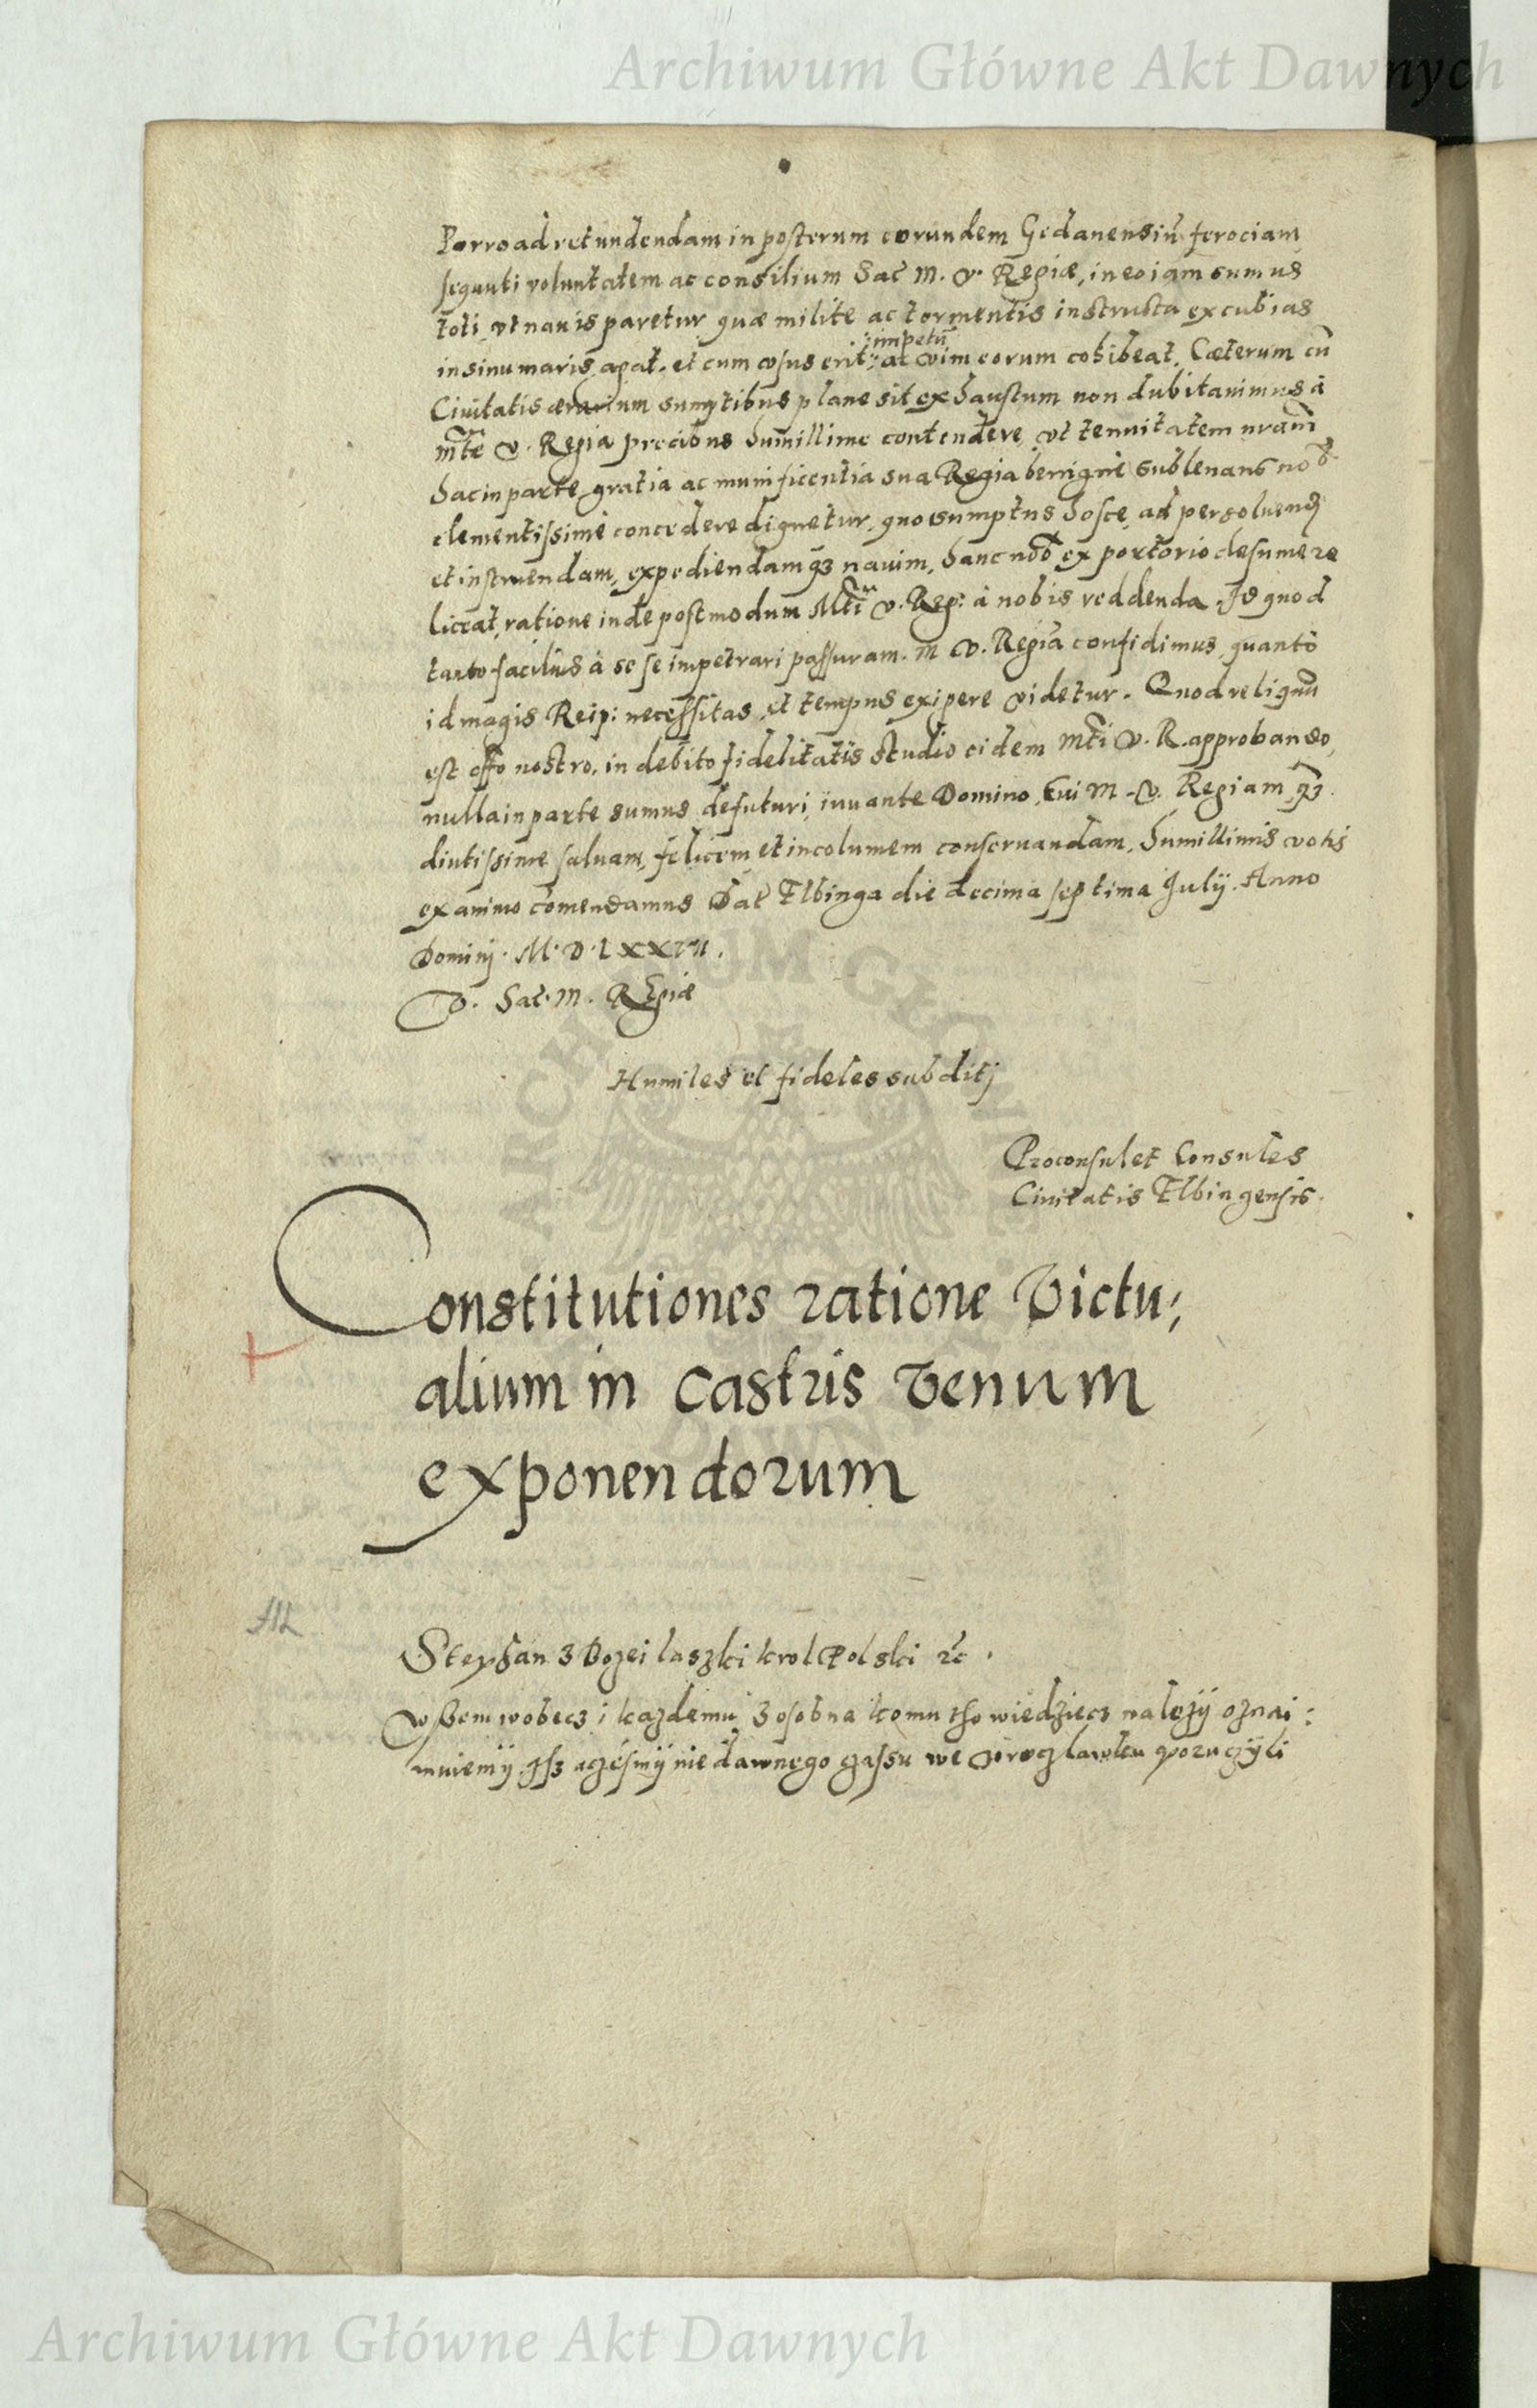 Archiwum Główne Akt Dawnych
Porro ad retundendam in posterum eorundem Gedanensiũ ferociam
sequuti voluntatem ac consilium Sac̃ M. V. Regiæ, in eo iam sumus
toti, vt nauis paretur quæ milite ac tormentis instructa excubias
in sinu maris agat, et cum vsus erit, impetũ ac vim eorum cohibeat. Cæterum cũ
Ciuitatis ærarium sumptibus plane sit exhaustum non dubitauimus à
Mte V. Regia precibus humillime contendere, vt tenuitatem nram
hac in parte, gratia ac munificentia sua Regia benigne subleuans nob
clementissime concedere dignetur, quo sumptus hosce, ad persoluend
et instruendam, expediendamq3 nauim, hanc nob ex portorio desumere
liceat, ratione inde postmodum Mti V. Reg: à nobis reddenda. Id quod
tanto facilius à se se impetrari passuram M V. Regia confidimus, quanto
id magis Reip: necessitas et tempus exigere videtur. Quod reliquũ
est offo nostro, in debito fidelitatis studio eidem Mti V. R. approbando,
nulla in parte sumus defuturi, iuuante Domino, Cui M. V. Regiam q3
diutissime saluam, felicem et incolumem conseruandam, humillimis votis
ex animo comendamus Dat Elbinga die decima septima Julij. Anno
Dominj. M. D. LXXVII.
V. Sac. M. Regiæ
Humiles et fideles subditj
Proconsul et Consules
Ciuitatis Elbingensis.
Constitutiones ratione Victu;
alium in castris venum
exponendorum
Stephan z Bozei laszki krol Polski rc.
wssem wobecz i kazdemu z osobna komu tho wiedziecz nalezÿ oznai:
muiemÿ, isz aczesmÿ niedawnego czassu we Wroczlawku poruczÿli
Archiwum Główne Akt Dawnych